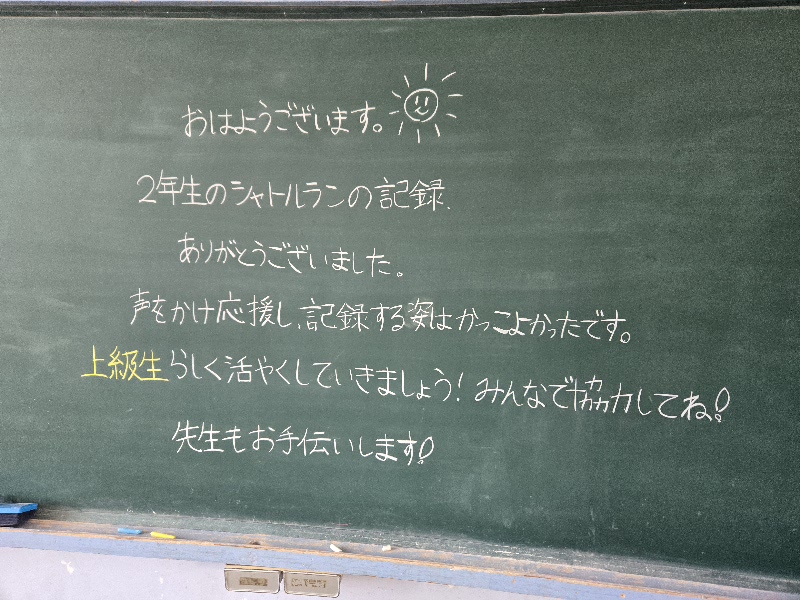 おはようございます。
2年生のシャトルランの記録、
ありがとうございました。
声をかけ応援し、記録する姿はかっこよかったです。
上級生らしく活やくしていきましょう！みんなで協力してね！
先生もお手伝いします！